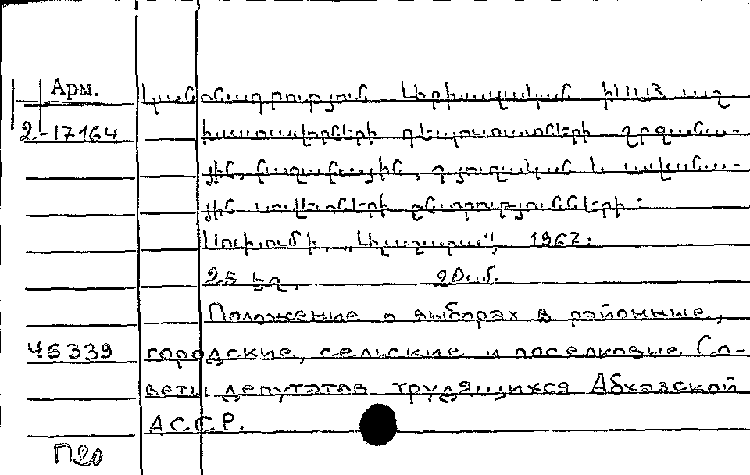 Арм.
2-17164
Կանոնադրություն Աբխազական ԻՍՍՌ աշ
խատավորների դեպուտատների շրջանա-
յին, քաղաքային, գյուղական և ավանա-
յին սովետների ընտրությունների:
Սուխումի, „Ալաշարա", 1967:
25 էջ, 20 սմ.
Положение о выборах в районные,
45339 городские, сельские и поселковые Со-
веты депутатов трудящихся Абхазской
АССР.
П20